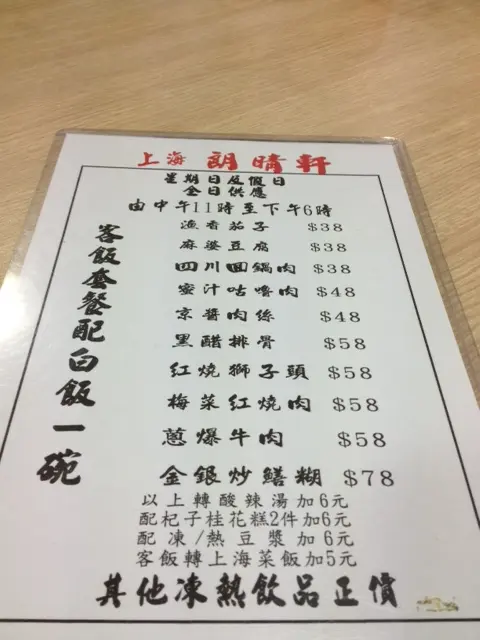 上海 朗晴軒
星期日及假日
全日供應
由中午11時至下午6時
客飯套餐配白飯一碗
漁香茄子 $38
麻婆豆腐 $38
四川回鍋肉 $38
蜜汁咕嚕肉 $48
京醬肉絲 $48
黑醋排骨 $58
紅燒獅子頭 $58
梅菜紅燒肉 $58
蔥爆牛肉 $58
金銀炒鱔糊 $78
以上轉酸辣湯加6元
配杞子桂花糕2件加6元
配凍/熱豆漿加6元
客飯轉上海菜飯加5元
其他凍熱飲品正價